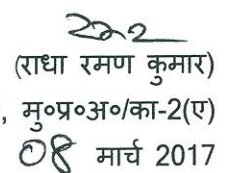 (राधा रमण कुमार)
, मु०प्र०अ०/का-2(ए)
08 मार्च 2017